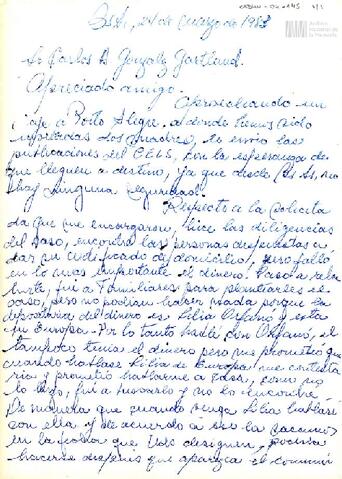 Bs As, 24 de Marzo de 1983
Sr Carlos A Gonzalez Gartland.
Apreciado amigo.
Aprovechando un
viaje a Porto Alegre, a donde hemos sido
invitadas dos Madres, te envio las
publicaciones del CELS, con la esperanza de
que lleguen a destino, ya que desde Bs As, no
hay ninguna seguridad.
Respecto a la solicita
da que me encargaron, hice las diligencias
del caso, encontré las personas dispuestas a
dar su certificado de domicilio, pero fallo
en lo mas importante el dinero. Paso a rela
tarte, fui a Familiares para plantearles el
caso, pero no podian hacer nada porque la
depositaria del dinero es Lilia Orfanó y esta
en Europa. Por lo tanto hablé con Orfanó, el
tampoco tenia el dinero pero me prometió que
cuando hablase Lilia de Europa me contesta
ria y prometió hablarme a casa, como no
lo hizo, fui a buscarlo y no lo encontré.
De manera que cuando venga Lilia hablaré
con ella y de acuerdo a eso la sacamos
en la fecha que Uds designen, podria
hacerse despues que aparezca el